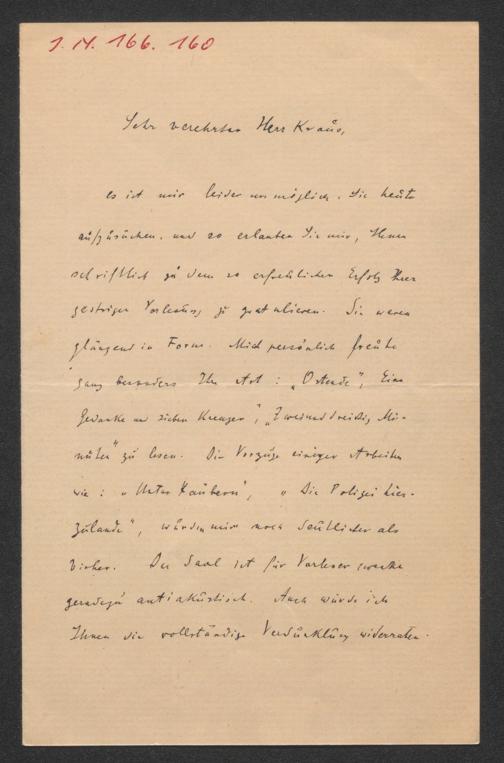 I. N. 166.160
Sehr verehrter Herr Kraus,
es ist mir leider unmöglich, Sie heute
aufzusuchen, und so erlauben Sie mir, Ihnen
schriftlich zu dem so erfreulichen Erfolg Ihrer
gestrigen Vorlesung zu gratulieren. Sie waren
glänzend in Form. Mich persönlich freute
ganz besonders Ihre Art: „Ostende“, „Eine
Gedanke um sieben Kreuzer“, „Zweiunddreißig Mi-
nuten“ zu lesen. Die Vorzüge einiger Arbeiten
wie: „Unter Räubern“, „Die Polizei hier-
zulande“, wurden mir noch deutlicher als
bisher. Der Saal ist für Vorlesezwecke
geradezu antiakustisch. Auch würde ich
Ihnen die vollständige Verdunklung widerraten.